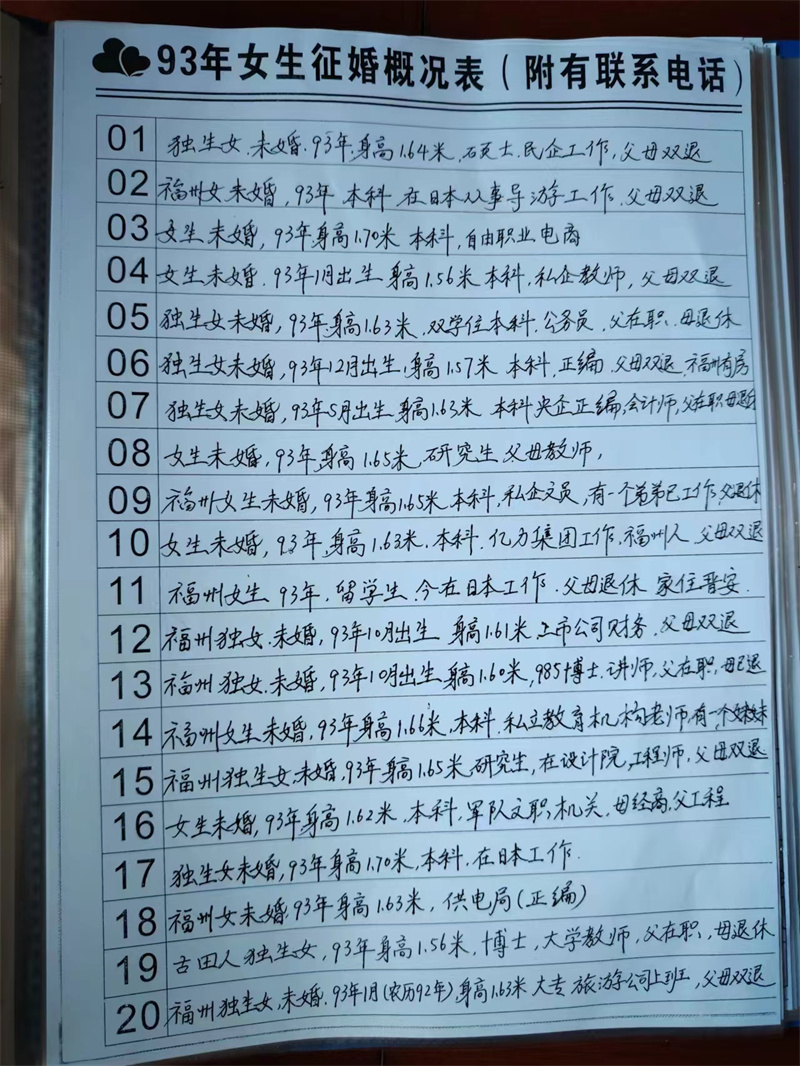 93年女生征婚概况表（附有联系电话）
01 独生女.未婚.93年.身高1.64米,硕士.民企工作,父母双退
02 福州女未婚,93年.本科.在日本从事导游工作.父母双退
03 女生未婚,93年身高1.70米 本科,自由职业电商
04 女生未婚.93年1月出生 身高1.56米 本科,私企教师,父母双退
05 独生女未婚,93年.身高1.63米.双学位本科.公务员.父在职.母退休
06 独生女未婚,93年12月出生,身高1.57米 本科,正编.父母双退,福州有房
07 独生女未婚,93年5月出生 身高1.63米 本科央企正编,会计师,父在职母退休
08 女生未婚,93年,身高1.65米,研究生.父母教师,
09 福州女生未婚,93年身高1.65米.本科,私企文员,有一个弟弟已工作,父退休
10 女生未婚,93年,身高1.63米.本科.亿力集团工作.福州人.父母双退
11 福州女生 93年.留学生.今在日本工作.父母退休 家住晋安.
12 福州独女.未婚,93年10月出生 身高1.61米.上市公司财务.父母双退
13 福州独女.未婚,93年10月出生 身高1.60米,985博士.讲师,父在职,母已退
14 福州女生未婚,93年身高1.66米,本科.私立教育机构老师,有一个妹妹
15 福州独生女,未婚,93年身高1.65米 研究生,在设计院,工程师,父母双退
16 女生未婚,93年身高1.62米.本科,军队文职机关.母经商,父工程
17 独生女未婚,93年身高1.70米,本科.在日本工作.
18 福州女未婚.93年身高1.63米,供电局(正编)
19 古田人独生女,93年身高1.56米,博士,大学教师,父在职,母退休
20 福州独生女,未婚.93年1月(农历92年),身高1.63米 大专 旅游公司上班,父母双退